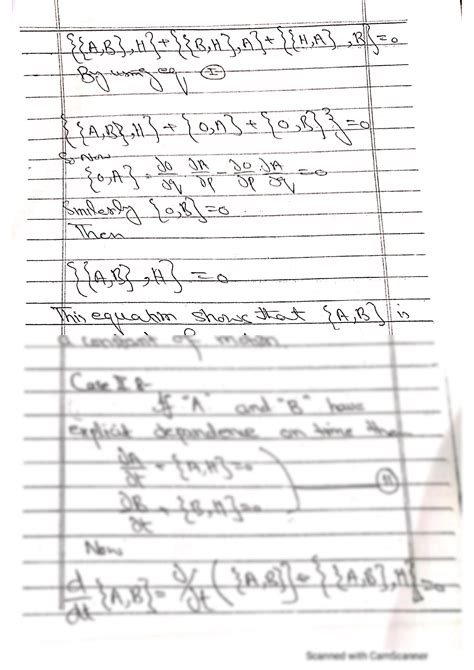 {{A,B},H}+{{B,H},A}+{{H,A},B}=0
By using eq (I)
{{A,B},H}+{0,A}+{0,B}}=0
So Now
{0,A} = ∂0/∂q ∂A/∂p - ∂0/∂p ∂A/∂q = 0
Similarly {0,B}=0
Then
{{A,B},H} = 0
This equation shows that {A,B} is
a constant of motion.
Case II :-
If "A" and "B" have
explicit dependence on time then
∂A/∂t + {A,H}=0
∂B/∂t + {B,H}=0
(II)
Now
d/dt {A,B} = ∂/∂t ({A,B}) + {{A,B},H}=0
Scanned with CamScanner